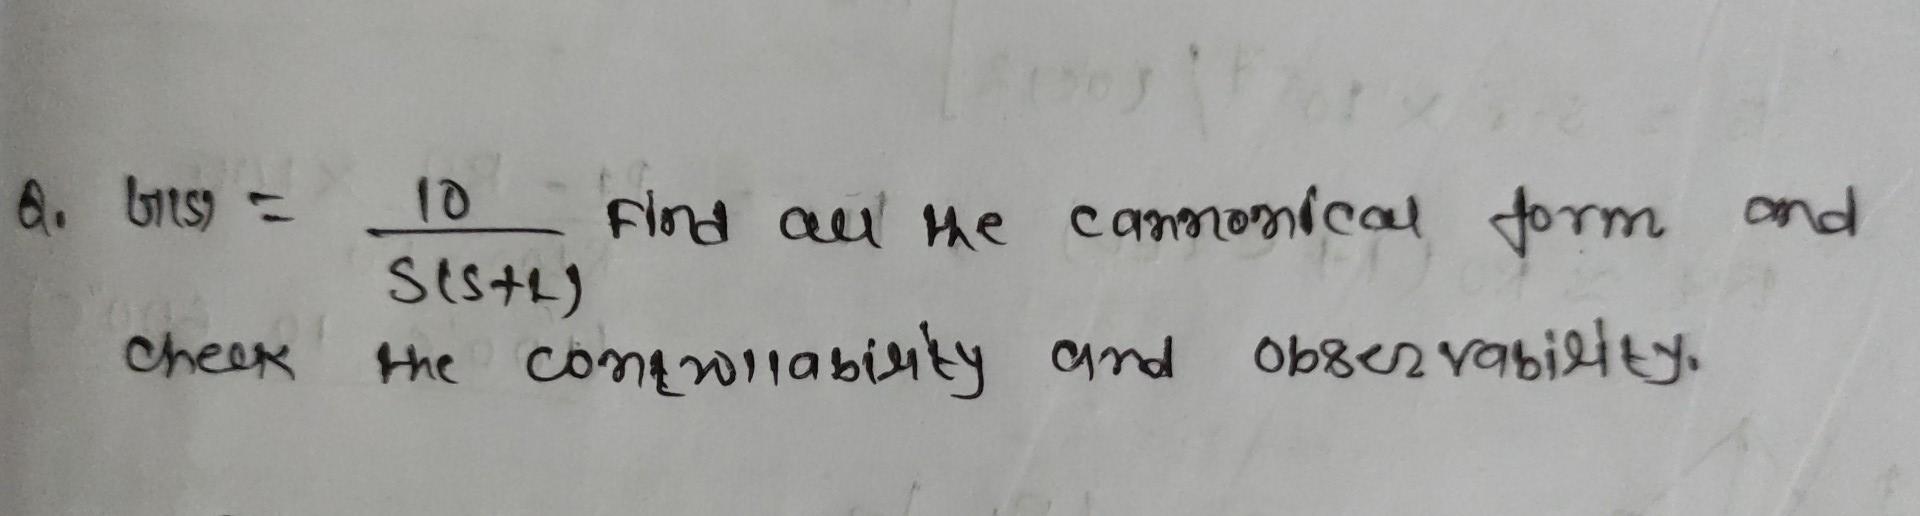 Q. G(s) = 10 / S(S+1) Find all the cannonical form and
check the controllability and observability.